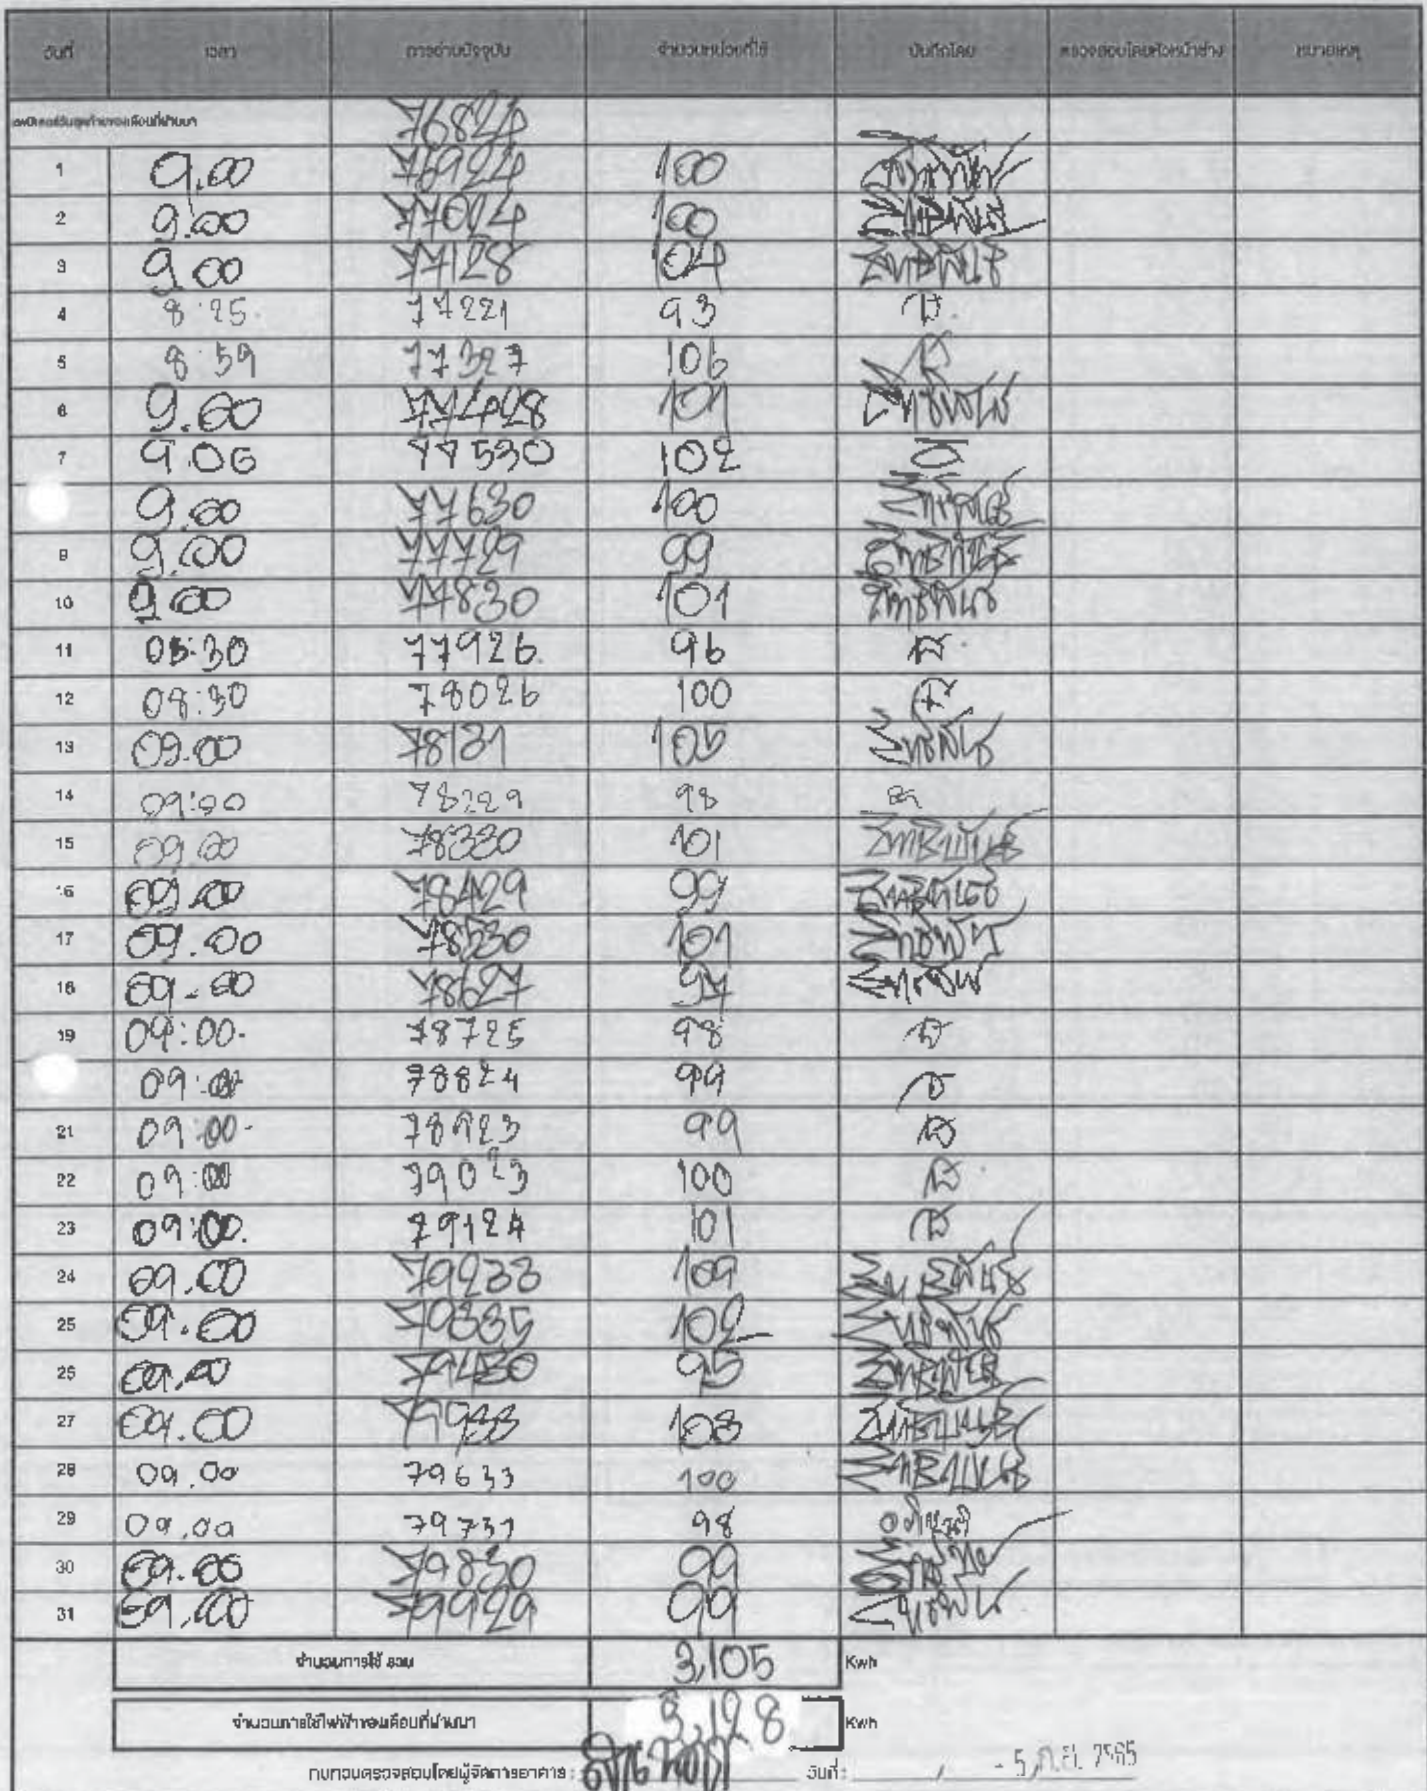 วันที่ เวลา การอ่านปัจจุบัน จำนวนหน่วยที่ใช้ บันทึกโดย ตรวจสอบโดยหัวหน้าช่าง หมายเหตุ
เลขมิเตอร์วันสุดท้ายของเดือนที่ผ่านมา 76824
1 9.00 76924 100
2 9.00 77024 100
3 9.00 77128 104
4 8:25 77221 93
5 8:59 77327 106
6 9.00 77428 101
7 9.06 77530 102
9.00 77630 100
9 9.00 77729 99
10 9.00 77830 101
11 08:30 77926 96
12 08:30 78026 100
13 09.00 78131 105
14 09:00 78229 98
15 09.00 78330 101
16 09.00 78429 99
17 09.00 78530 101
18 09-00 78627 97
19 09:00 78725 98
09:00 78824 99
21 09:00 78923 99
22 09:00 79023 100
23 09:00 79124 101
24 09.00 79233 109
25 09.00 79335 102
26 09.00 79430 95
27 09.00 79533 103
28 09.00 79633 100
29 09.00 79731 98
30 09.00 79830 99
31 09.00 79929 99
จำนวนการใช้ รวม 3,105 Kwh
จำนวนการใช้ไฟฟ้าของเดือนที่ผ่านมา 3,128 Kwh
ทบทวนตรวจสอบโดยผู้จัดการอาคาร : วันที่: - 5 ก.ย. 2565